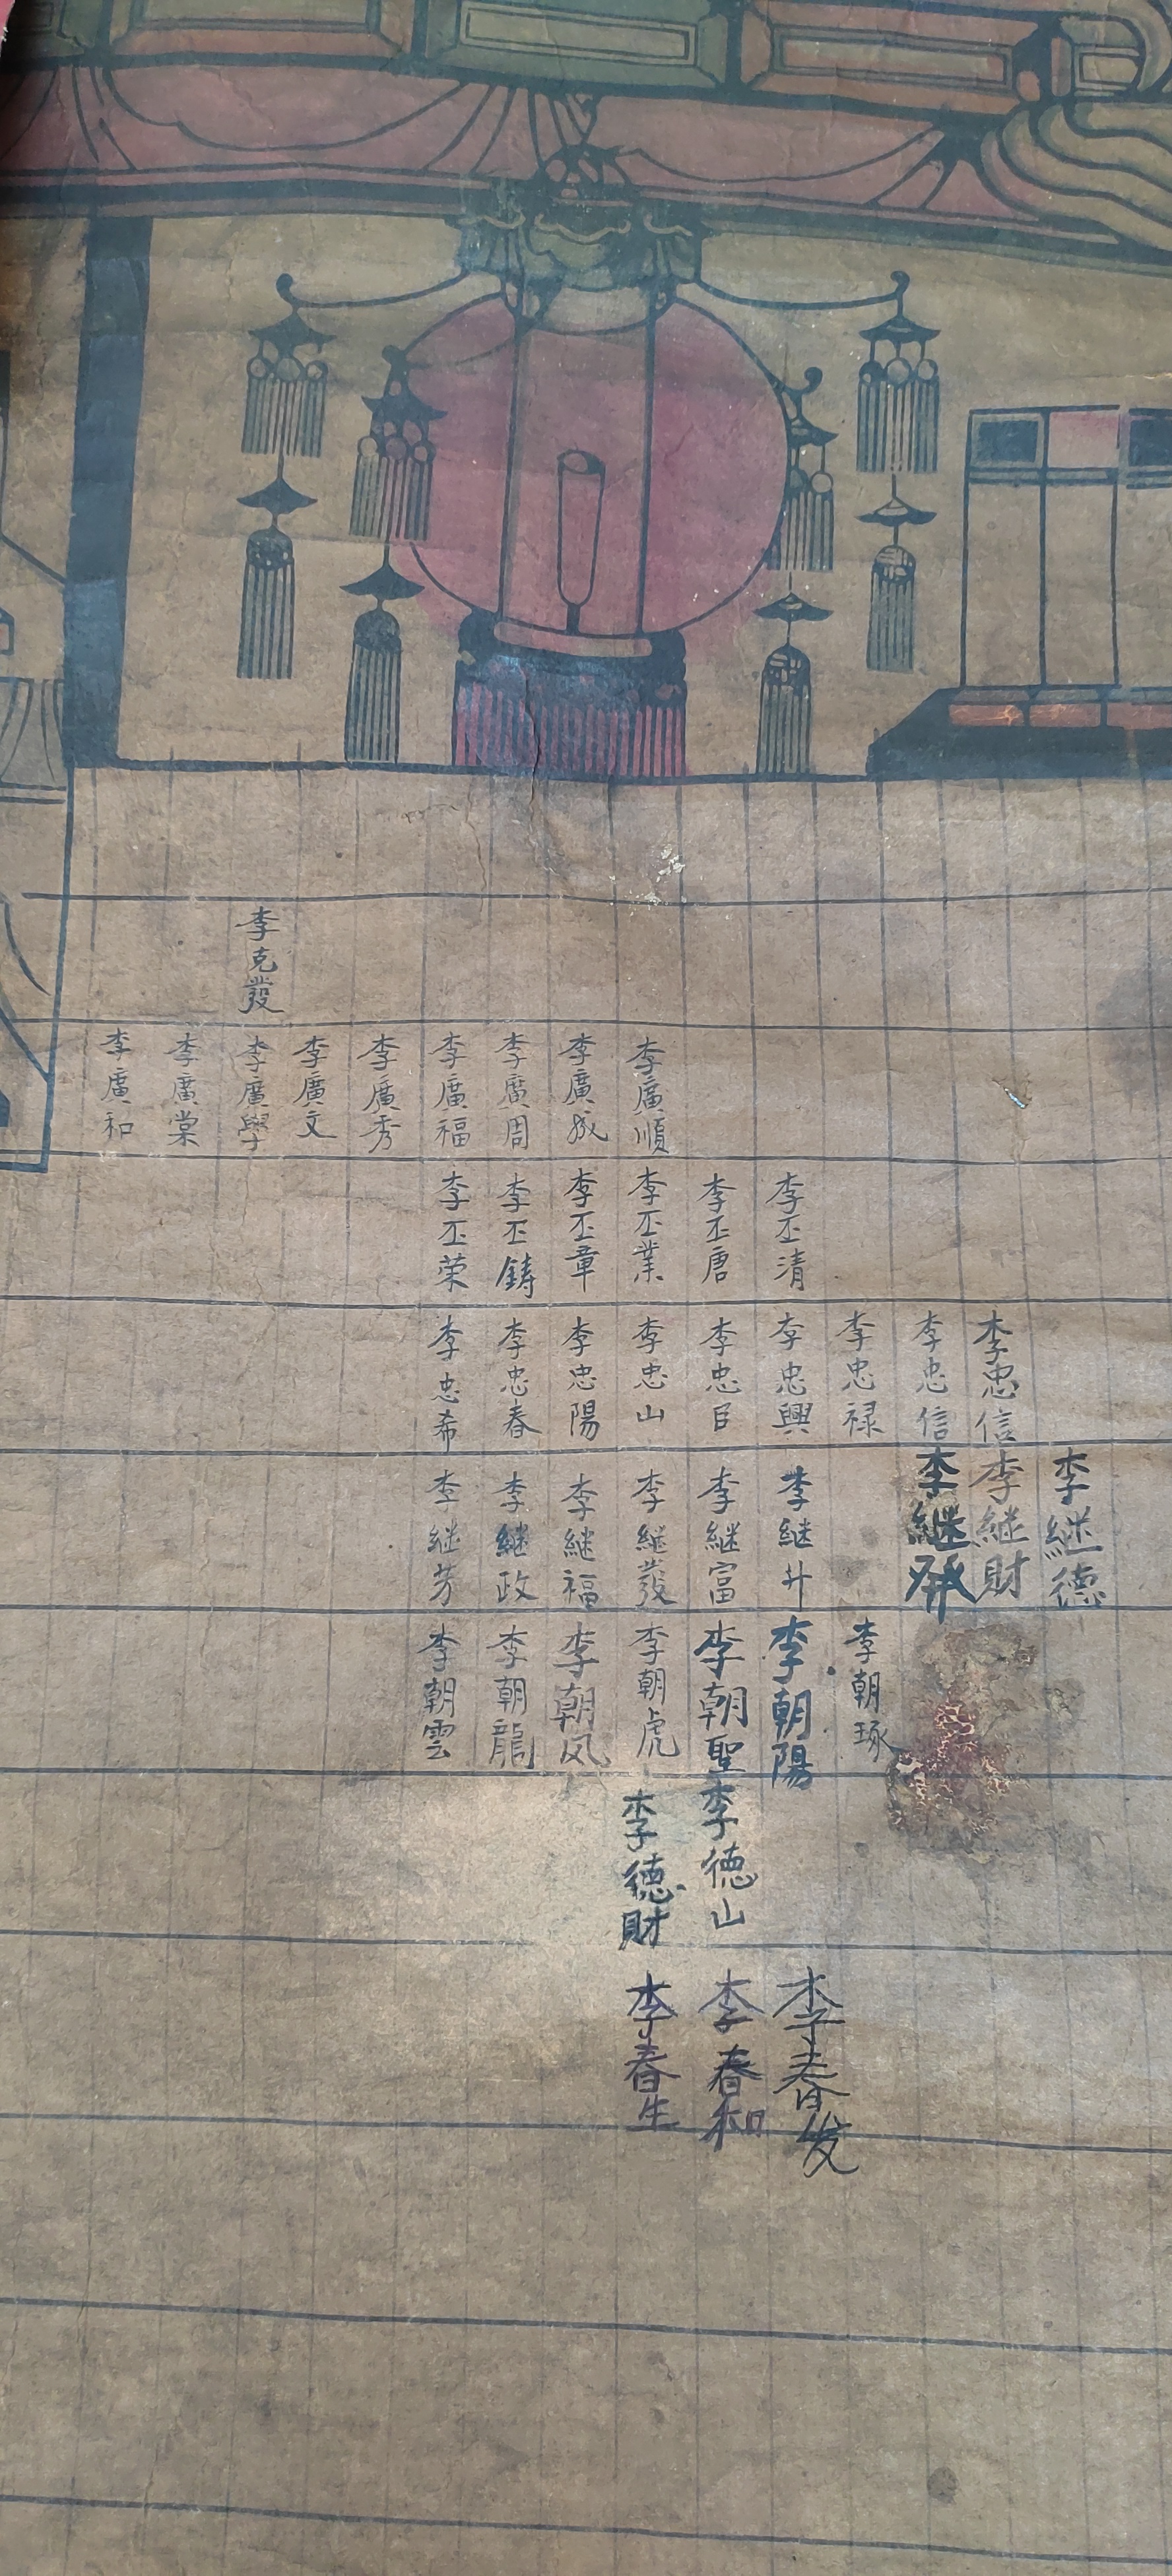 李克發
李廣和
李廣棠
李廣學
李廣文
李廣秀
李廣福
李廣周
李廣成
李廣順
李丕荣
李丕鋳
李丕章
李丕業
李丕唐
李丕清
李忠希
李忠春
李忠陽
李忠山
李忠臣
李忠興
李忠禄
李忠信
李忠信
李继芳
李継政
李継福
李継發
李継富
李継升
李継發
李継財
李継德
李朝雲
李朝龍
李朝凤
李朝虎
李朝聖
李朝陽
李朝琢
李德財
李德山
李春生
李春和
李春发